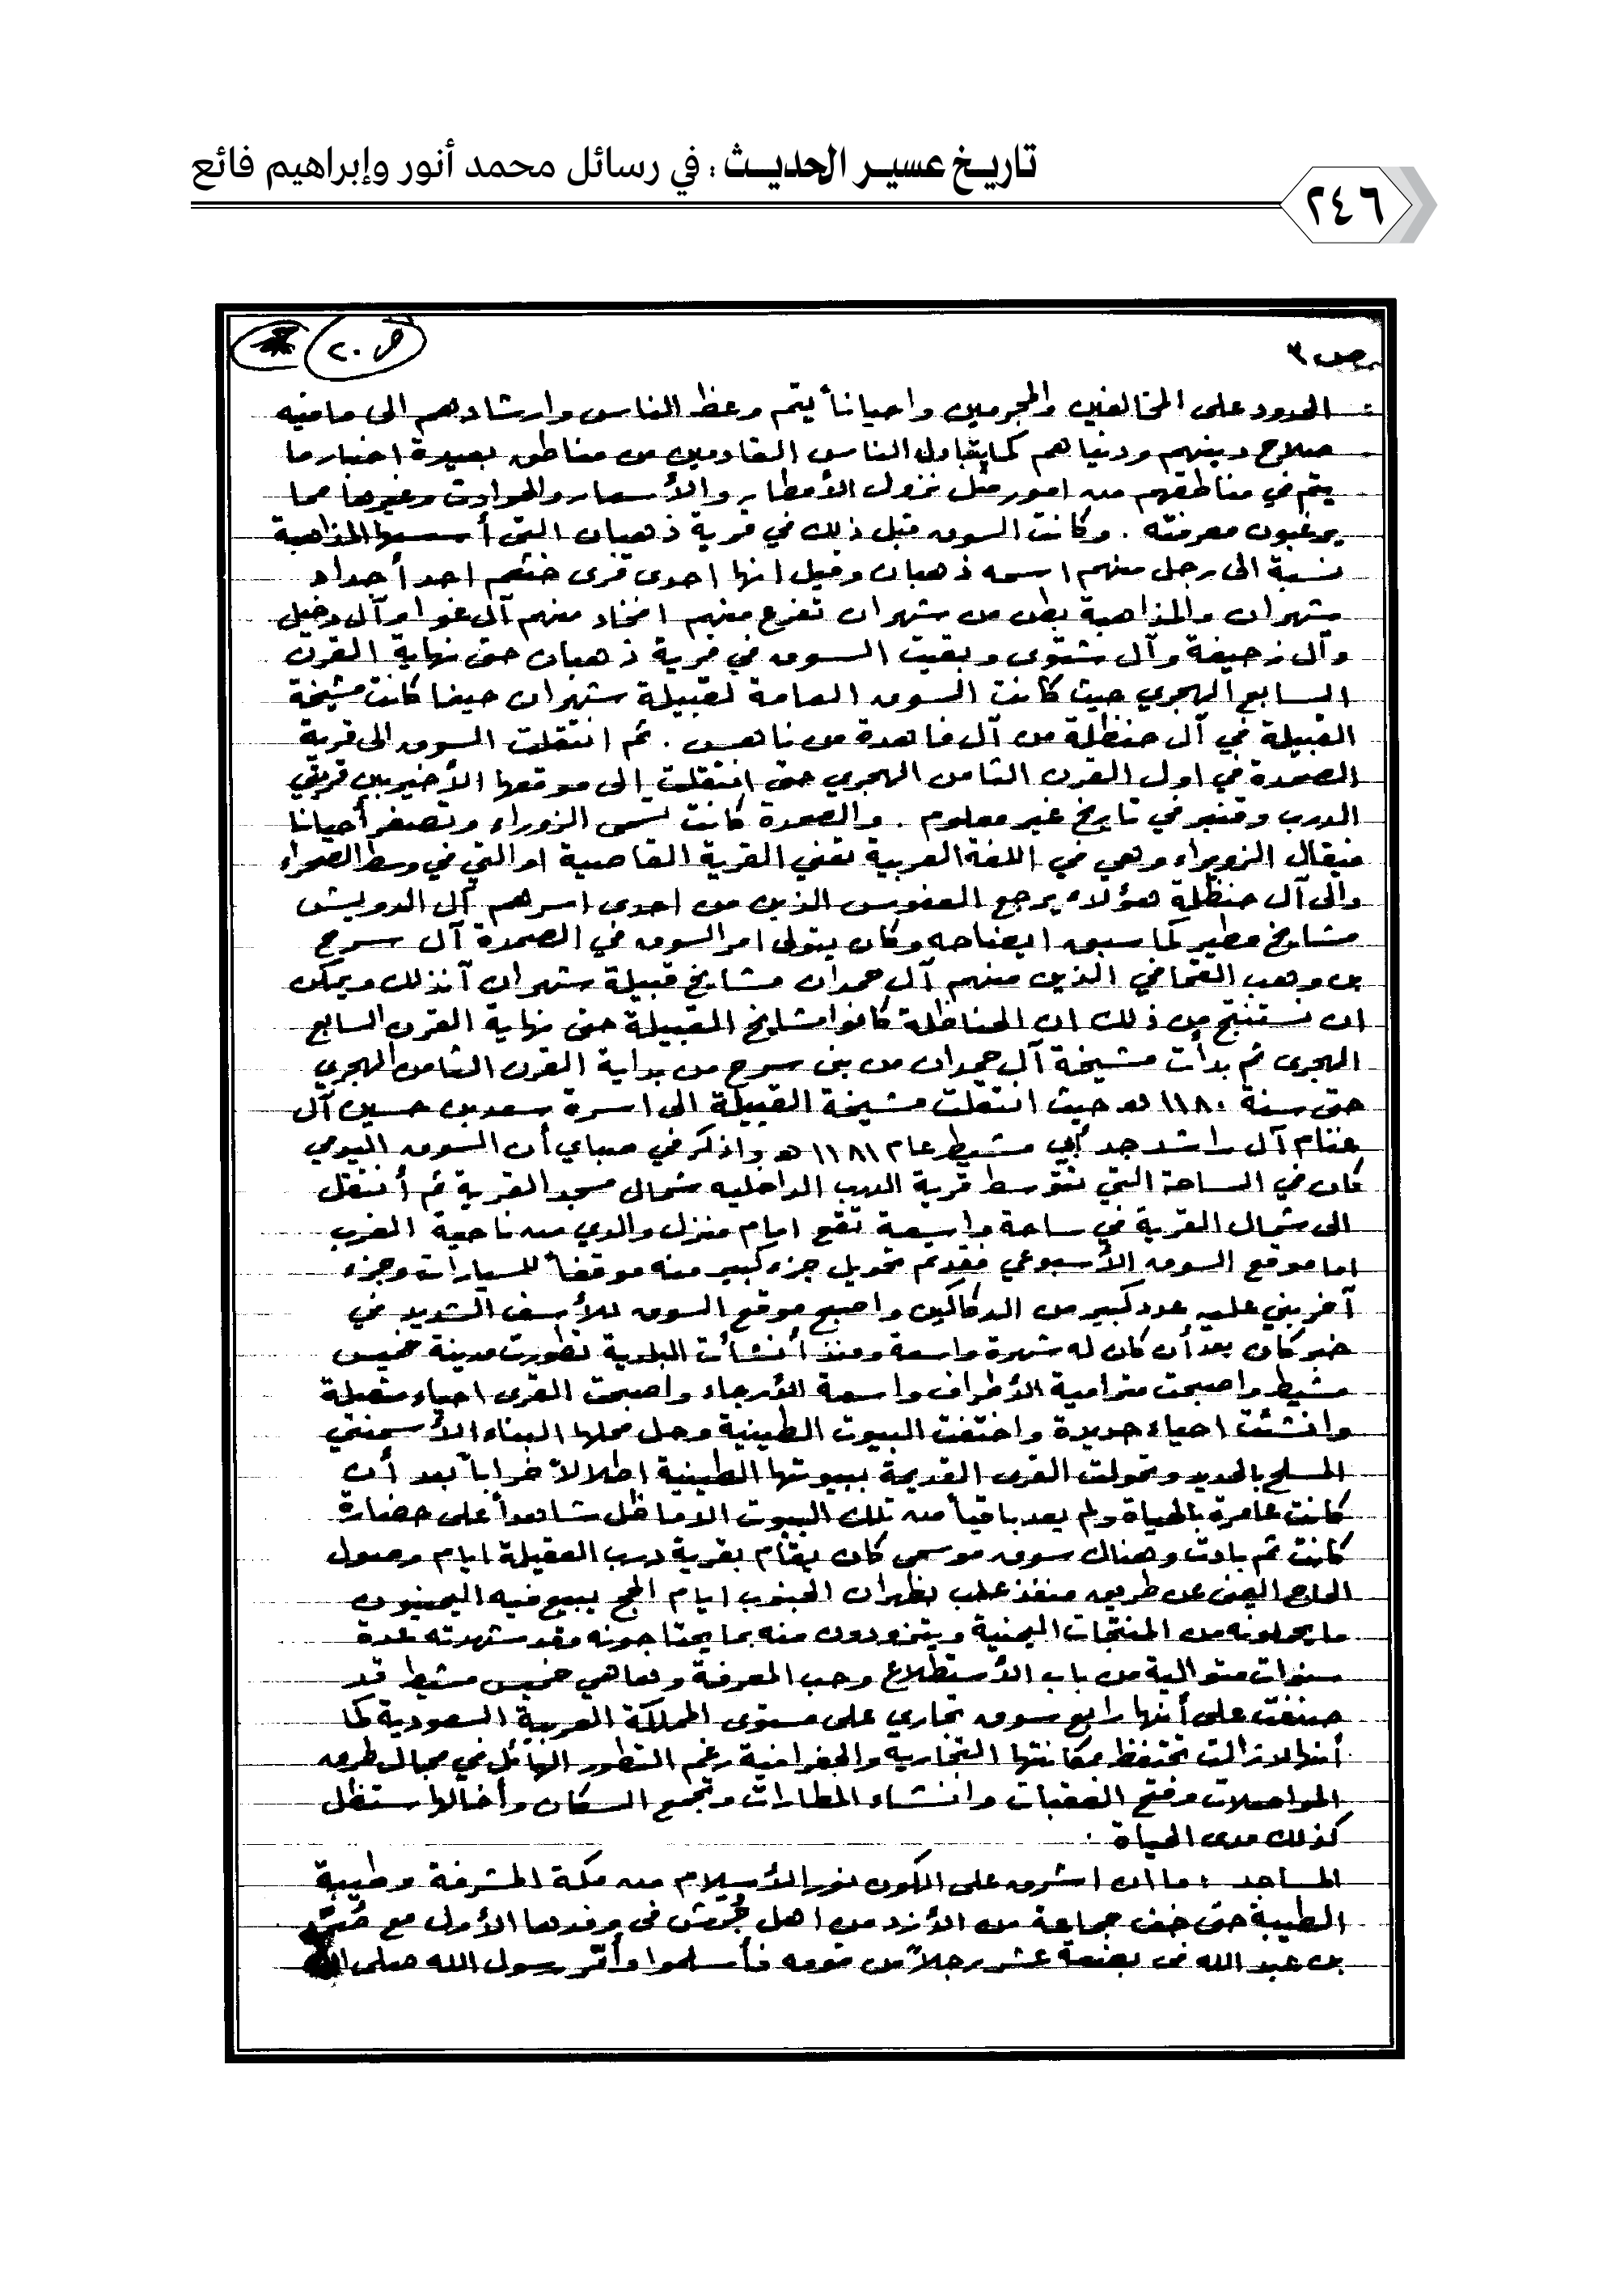 تاريخ عسير الحديث : في رسائل محمد أنور وإبراهيم فائع
٢٤٦
ص ٣
ص ٢٠
الحدود على المخالفين والمجرمين واحياناً يتم وعظ الناس وارشادهم الى مافيه
صلاح دينهم ودنياهم كما يتبادل الناس القادمين من مناطق بعيدة اخبار ما
يتم في مناطقهم من امور مثل نزول الأمطار والأسعار والحوادث وغيرها مما
يرغبون معرفته . وكانت السوق قبل ذلك في قرية ذهبان التي أسسها المذاهبة
نسبة الى رجل منهم اسمه ذهبان وقيل انها احدى قرى خثعم احد أجداد
شهران والمذاهبة بطن من شهران تفرع منهم افخاد منهم آل غوا وآل دخيل
وآل زحيفة وآل شتوى وبقيت السوق في قرية ذهبان حتى نهاية القرن
السابع الهجري حيث كانت السوق العامة لقبيلة شهران حينما كانت مشيخة
القبيلة في آل حنظلة من آل فاهدة من ناهس . ثم انتقلت السوق الى قرية
الصمدة في اول القرن الثامن الهجري حتى انتقلت الى موقعها الأخير بين قريتي
الدرب وقنبر في تاريخ غير معلوم . والصمدة كانت تسمى الزوراء وتصغر أحيانا
فيقال الزويراء وهي في اللغة العربية تعني القرية القاصية او التي في وسط الصحراء
والى آل حنظلة هؤلاء يرجع العفوس الذين من احدى اسرهم آل الدويش
مشايخ مطير كما سبق ايضاحه وكان يتولى امر السوق في الصمدة آل سرح
بن وهب القحافي الذين منهم آل حمدان مشايخ قبيلة شهران آنذلك ويمكن
ان نستنتج من ذلك ان الحناظلة كانوا مشايخ القبيلة حتى نهاية القرن السابع
الهجري ثم بدأت مشيخة آل حمدان من بني سرح من بداية القرن الثامن الهجري
حتى سنة ١١٨٠ هـ حيث انتقلت مشيخة القبيلة الى اسرة سعد بن حسين آل
غنام آل راشد جد أبي مشيط عام ١١٨١ هـ واذكر في صباي أن السوق اليومي
كان في الساحة التي تتوسط قرية الدرب الداخليه شمال مسجد القرية ثم أنتقل
الى شمال القرية في ساحة واسعة تقع امام منزل والدي من ناحية الغرب
اما موقع السوق الأسبوعي فقد تم تحويل جزء كبير منه موقفاً للسيارات وجزء
آخر بني عليه عدد كبير من الدكاكين واصبح موقع السوق للأسف الشديد في
خبر كان بعد أن كان له شهرة واسعة ومنذ أنشأت البلدية تطورت مدينة خميس
مشيط واصبحت مترامية الأطراف واسعة الأرجاء واصبحت القرى احياء متصلة
وانشئت احياء جديدة واختفت البيوت الطينية وحل محلها البناء الأسمنتي
المسلح بالحديد وتحولت القرى القديمة ببيوتها الطينية اطلالاً خراباً بعد أن
كانت عامرة بالحياة ولم يعد باقياً من تلك البيوت الا ما ظل شاهداً على حضارة
كانت ثم بادت وهناك سوق موسمى كان يقام بقرية درب العقيلة ايام وصول
الحاج اليمني عن طريق منفذ علب بظهران الجنوب ايام الحج يبيع فيه اليمنيون
ما يحملونه من المنتجات اليمنية ويتزودون منه بما يحتاجونه وقد شهدته عدة
سنوات متوالية من باب الأستطلاع وحب المعرفة وهاهي خميس مشيط قد
صنفت على أنها رابع سوق تجاري على مستوى المملكة العربية السعودية كما
أنها لازالت تحتفظ بمكانتها التجاريه والجغرافية رغم التطور الهائل في مجال طرق
المواصلات وفتح العقبات وانشاء المطارات وتجمع السكان وأخالها ستظل
كذلك مدى الحياة .
المساجد : ما ان اشرق على الكون نور الأسلام من مكة المشرفة وطيبة
الطيبة حتى خف جماعة من الأزد من اهل جُرش في وفدها الأول مع صُرَد
بن عبد الله في بضعة عشر رجلاً من قومه فأسلموا وأمّر رسول الله صلى الله